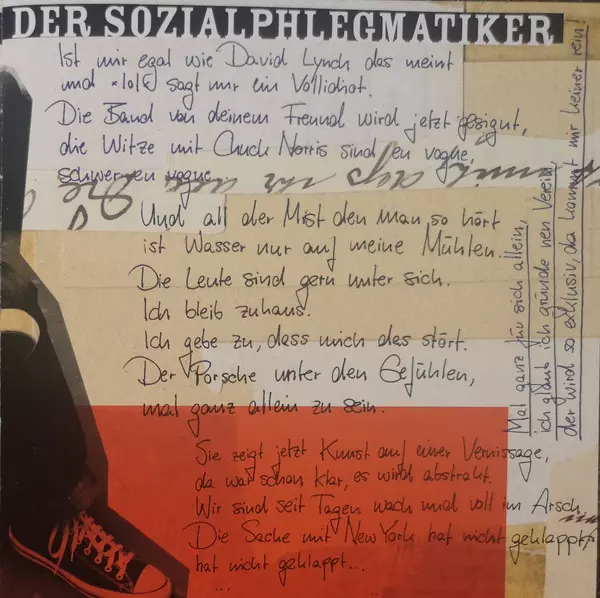 DER SOZIALPHLEGMATIKER
Ist mir egal wie David Lynch das meint
und *lol€ sagt nur ein Vollidiot.
Die Band von deinem Freund wird jetzt gesignt,
die Witze mit Chuck Norris sind en vogue,
schwer en vogue
Und all der Mist den man so hört
ist Wasser nur auf meine Mühlen.
Die Leute sind gern unter sich.
Ich bleib zuhaus.
Ich gebe zu, dass mich das stört.
Der Porsche unter den Gefühlen,
mal ganz allein zu sein.
Mal ganz für sich allein,
ich glaub ich gründe nen Verein,
der wird so exklusiv, da kommt mir keiner rein!
Sie zeigt jetzt Kunst auf einer Vernissage,
da war schon klar, es wird abstrakt.
Wir sind seit Tagen wach und voll im Arsch
Die Sache mit New York hat nicht geklappt,
hat nicht geklappt...
...